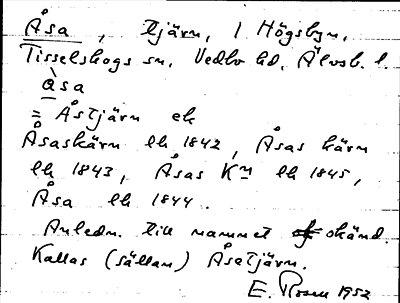 Åsa, tjärn, 1 Högsbyn,
Tisselskogs sn, Vedbo hd, Älvsb. l.
Åsa
= Åstjärn ek
Åsaskärn lk 1842, Åsas kärn
lk 1843, Åsas Kn lk 1845,
Åsa lk 1844.
Anledn. till namnet okänd.
Kallas (sällan) Åsetjärn.
E. 1952